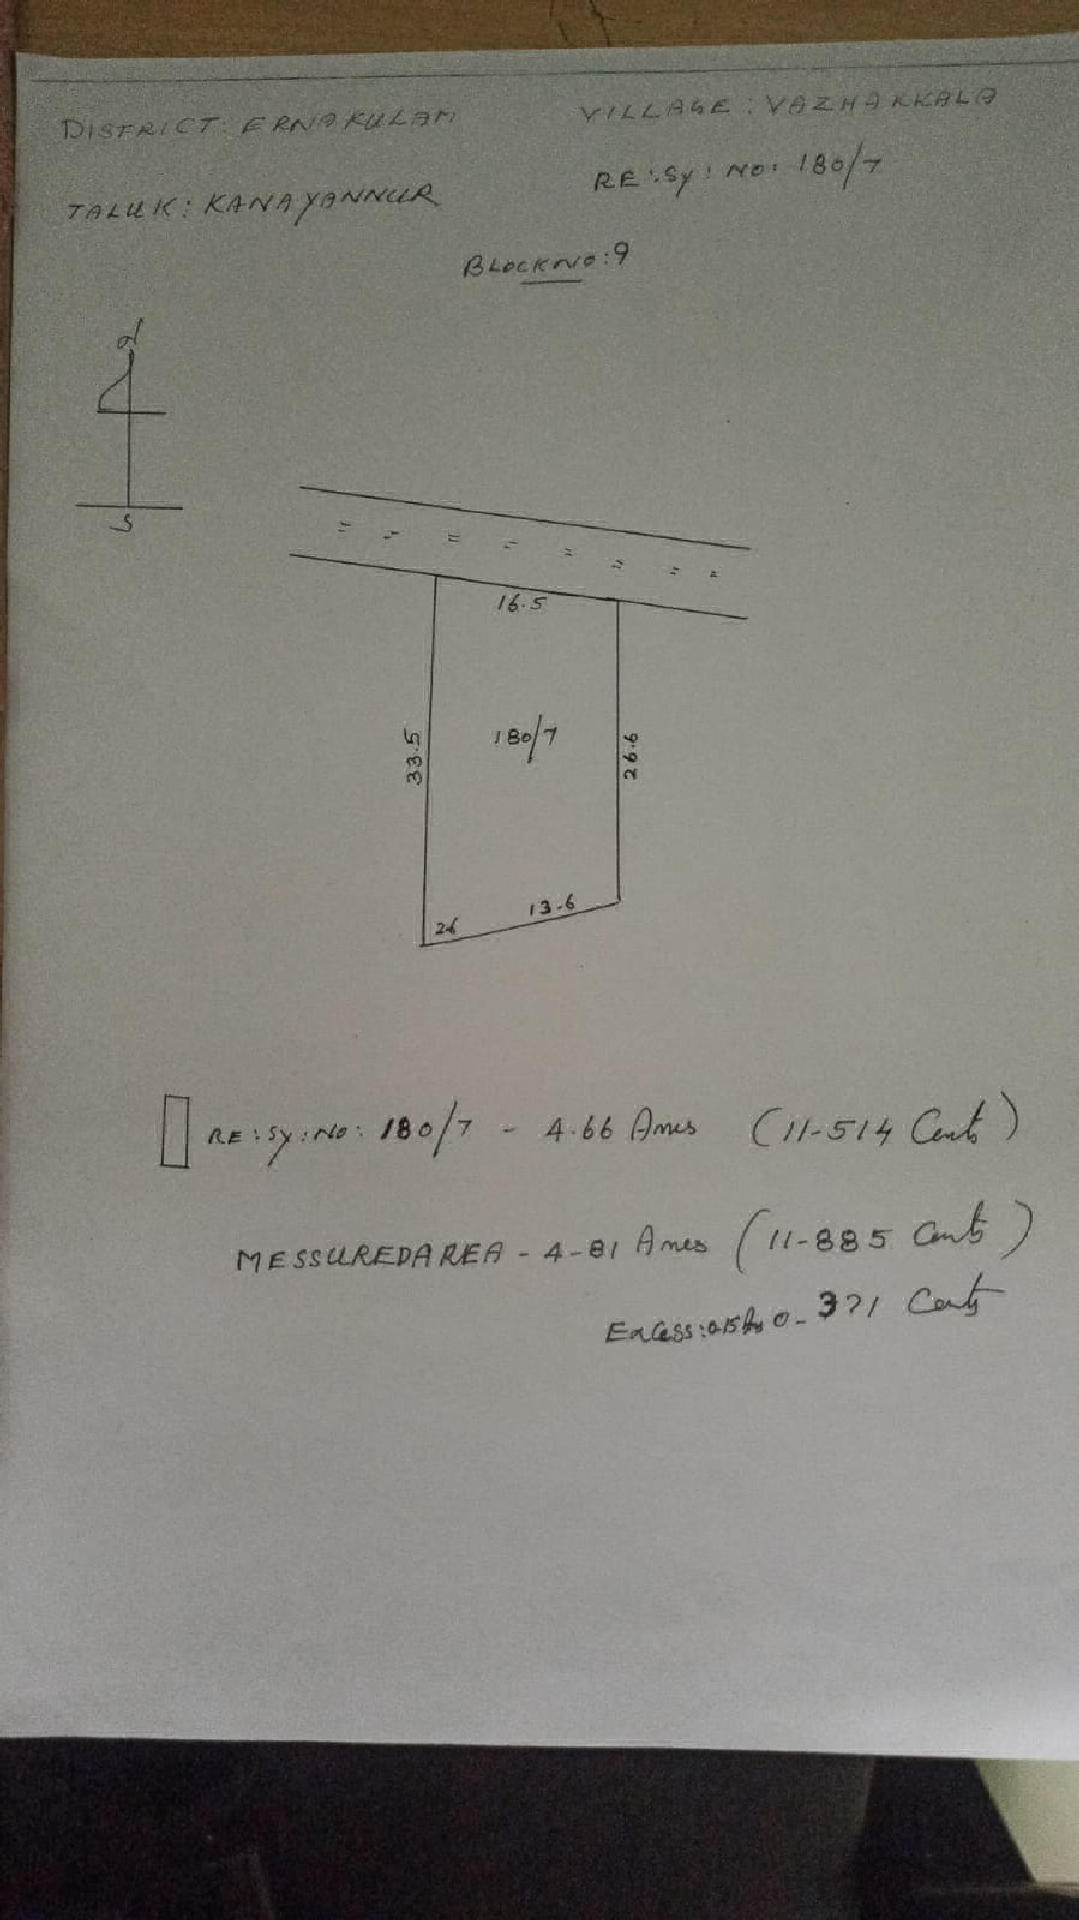 DISTRICT: ERNAKULAM
VILLAGE: VAZHAKKALA
TALUK: KANAYANNUR
RE:Sy: NO: 180/7
BLOCK NO: 9
S
16.5
33.5
180/7
26.6
13.6
26
RE:Sy:No: 180/7 - 4.66 Ares (11-514 Cents)
MESSURED AREA - 4-81 Ares (11-885 Cents)
Excess: 0-371 Cents